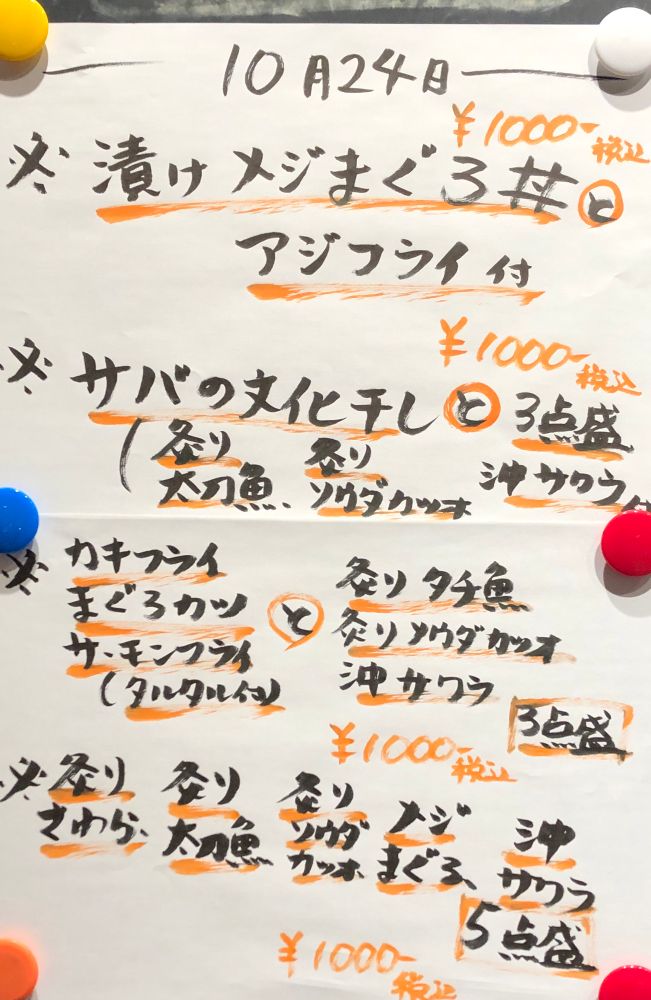 10月24日
¥1000-税込
※漬けメジまぐろ丼と
アジフライ付
¥1000-税込
※サバの文化干しと3点盛
(炙り太刀魚、炙りソウダカツオ 沖サワラ付
※カキフライ
まぐろカツ
サーモンフライ
(タルタル付)
と
炙りタチ魚
炙りソウダカツオ
沖サワラ
3点盛
¥1000-税込
※炙りさわら、炙り太刀魚 炙りソウダカツオ メジまぐろ、沖サワラ
5点盛
¥1000-税込